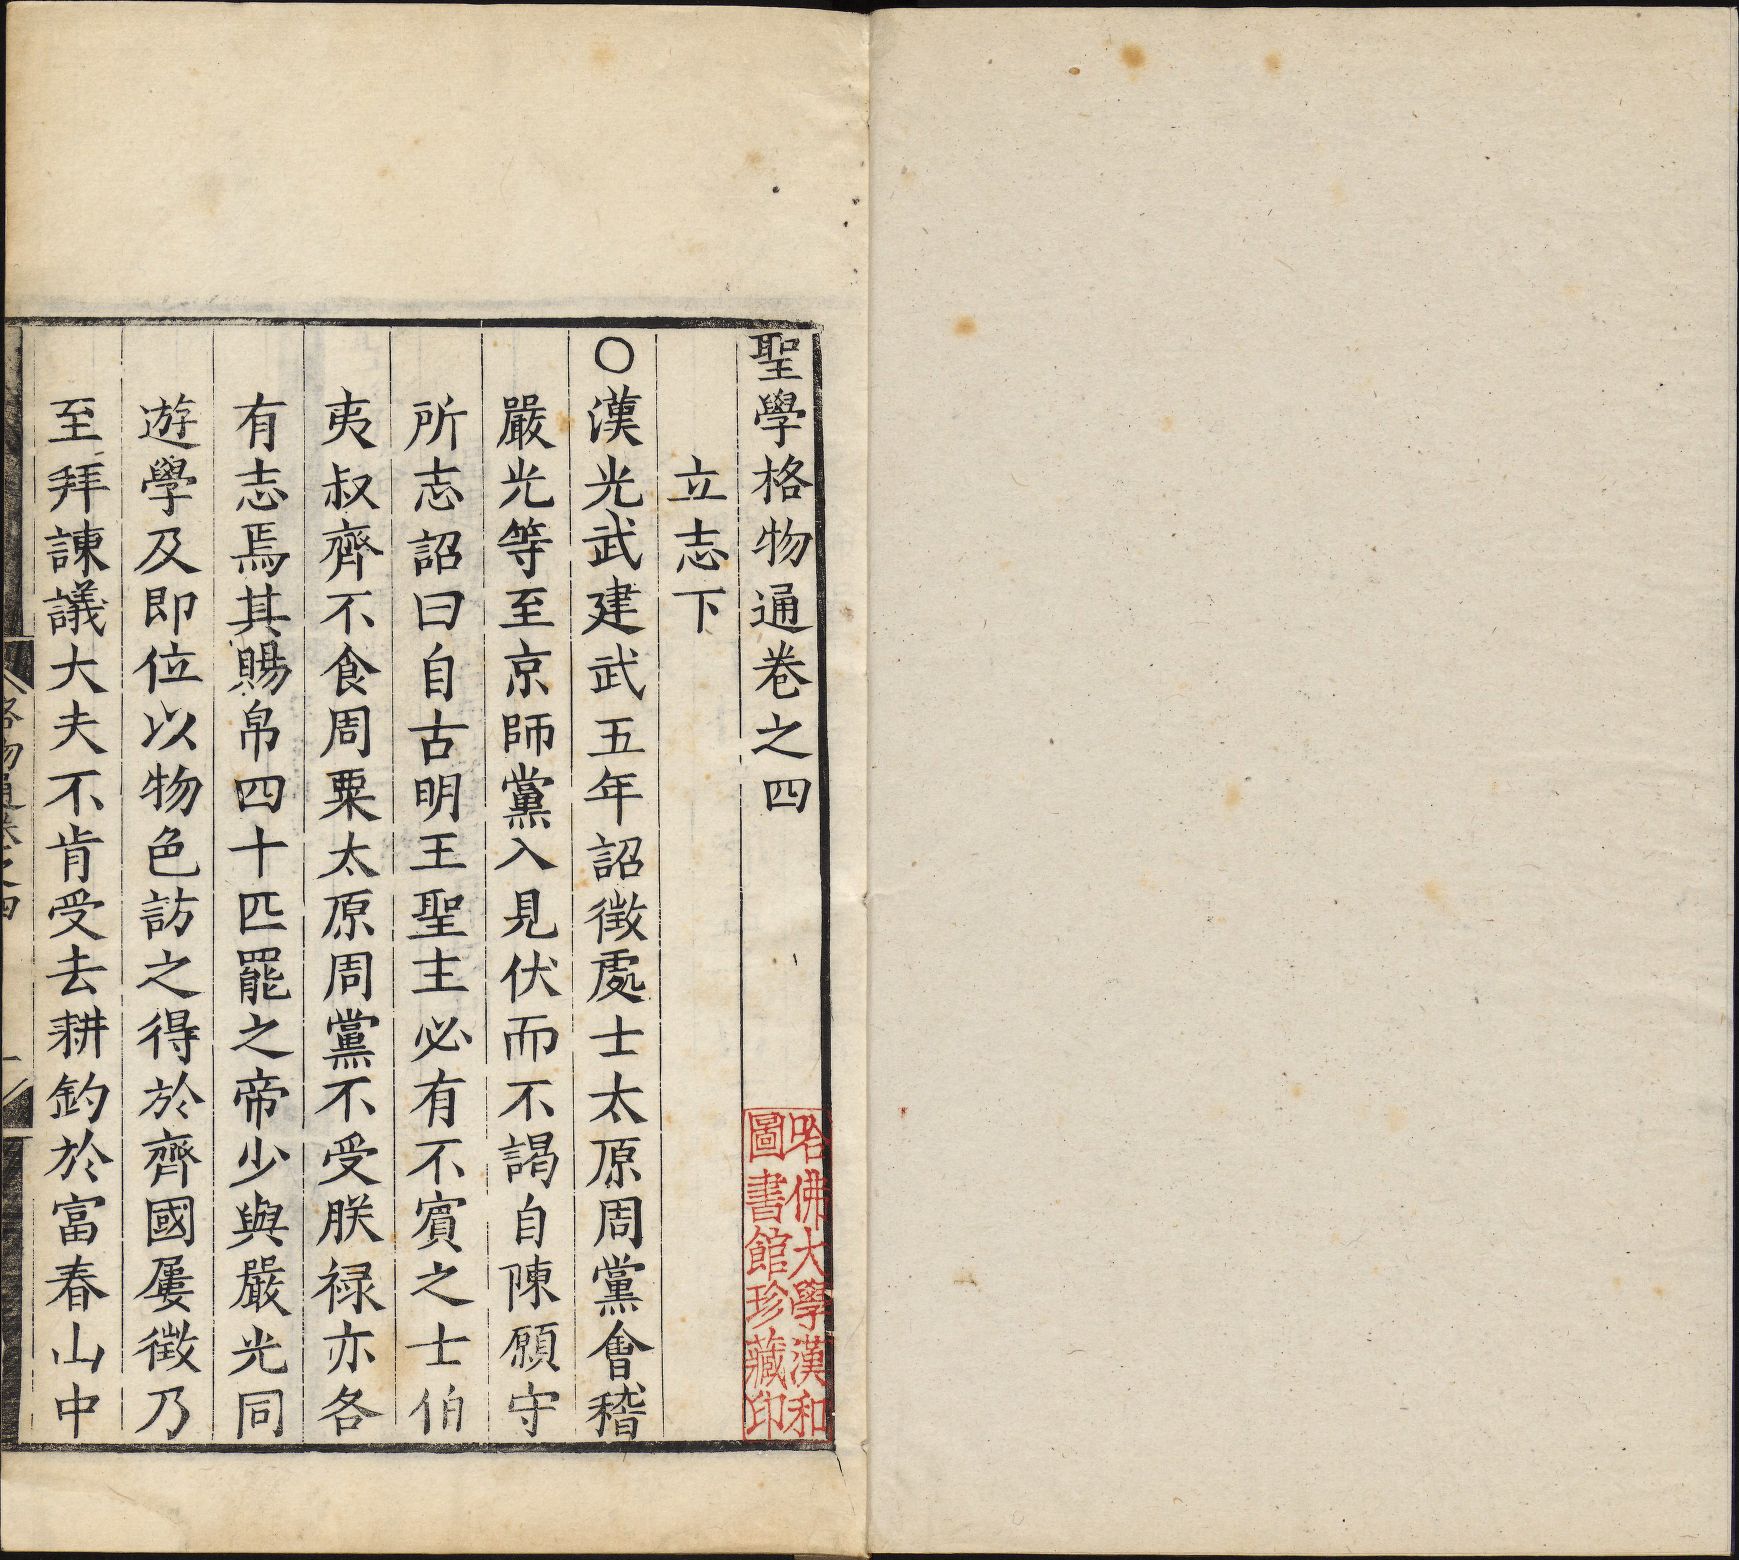 聖學格物通卷之四
立志下
○漢光武建武五年詔徵處士太原周黨會稽
嚴光等至京師黨入見伏而不謁自陳願守
所志詔曰自古明王聖主必有不賓之士伯
夷叔齊不食周粟太原周黨不受朕禄亦各
有志焉其賜帛四十匹罷之帝少與嚴光同
遊學及即位以物色訪之得於齊國屢徵乃
至拜諫議大夫不肯受去耕釣於富春山中
格物通卷之四
一
哈佛大學漢和
圖書館珍藏印